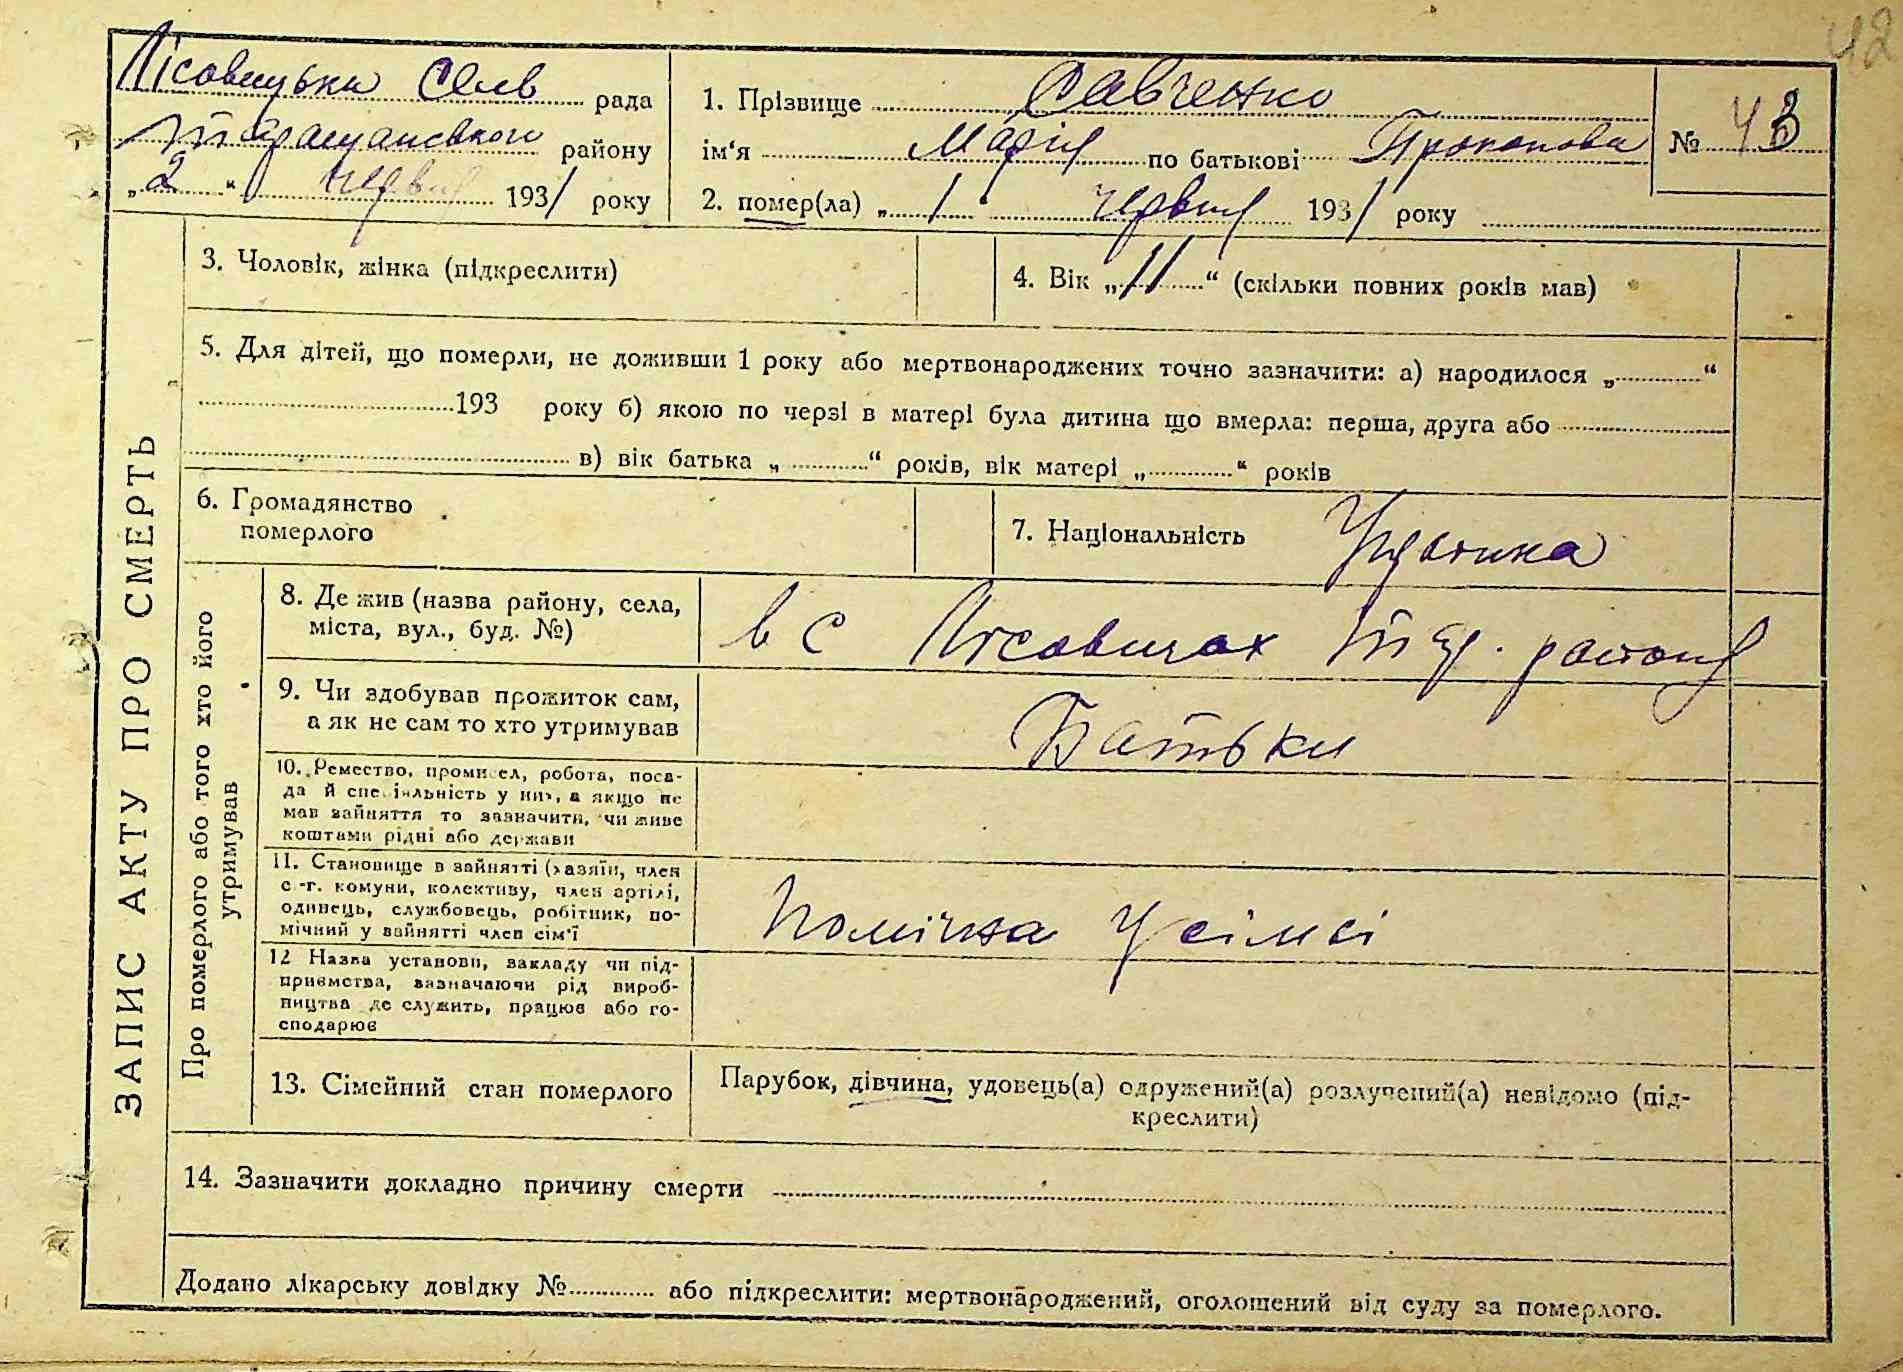 42
Лісовицька Село рада
Таращанського району
„2“ червня 1931 року
1. Прізвище Савченко
ім‘я Марія по батькові Прокопова
2. помер(ла) „1“ червня 1931 року
№ 43
ЗАПИС АКТУ ПРО СМЕРТЬ
3. Чоловік, жінка (підкреслити)
4. Вік „11“ (скільки повних років мав)
5. Для дітей, що померли, не доживши 1 року або мертвонароджених точно зазначити: а) народилося „ “
193 року б) якою по черзі в матері була дитина що вмерла: перша, друга або
в) вік батька „ “ років, вік матері „ “ років
6. Громадянство
померлого
7. Національність
Про померлого або того хто його
утримував
8. Де жив (назва району, села,
міста, вул., буд. №)
в с Лісовичах Тар. району
9. Чи здобував прожиток сам,
а як не сам то хто утримував
Батьки
10. Ремество, промисел, робота, поса-
да й спеціяльність у них, а якщо не
мав зайняття то зазначити, чи живе
коштами рідні або держави
11. Становище в зайнятті (хазяїн, член
с.-г. комуни, колективу, член артілі,
одинець, службовець, робітник, по-
мічний у зайнятті член сім‘ї
Помічна у сімьі
12 Назва установи, закладу чи під-
приємства, зазначаючи рід вироб-
ництва де служить, працює або го-
сподарює
13. Сімейний стан померлого
Парубок, дівчина, удовець(а) одружений(а) розлучений(а) невідомо (під-
креслити)
14. Зазначити докладно причину смерти
Додано лікарську довідку № або підкреслити: мертвонароджений, оголошений від суду за померлого.